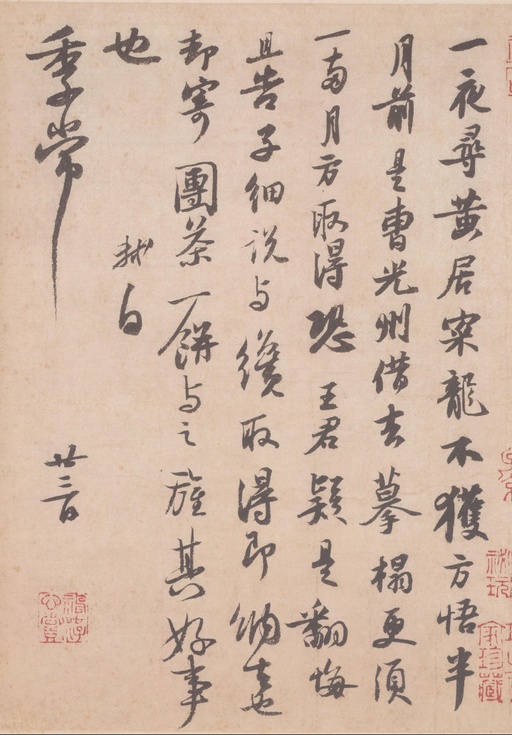 一夜尋黃居寀龍不獲方悟半
月前是曹光州借去摹搨更須
一兩月方取得恐王君疑是翻悔
且告子細說与纔取得即納去也
却寄團茶一餅与之旌其好事
也
軾白
季常
廿三日